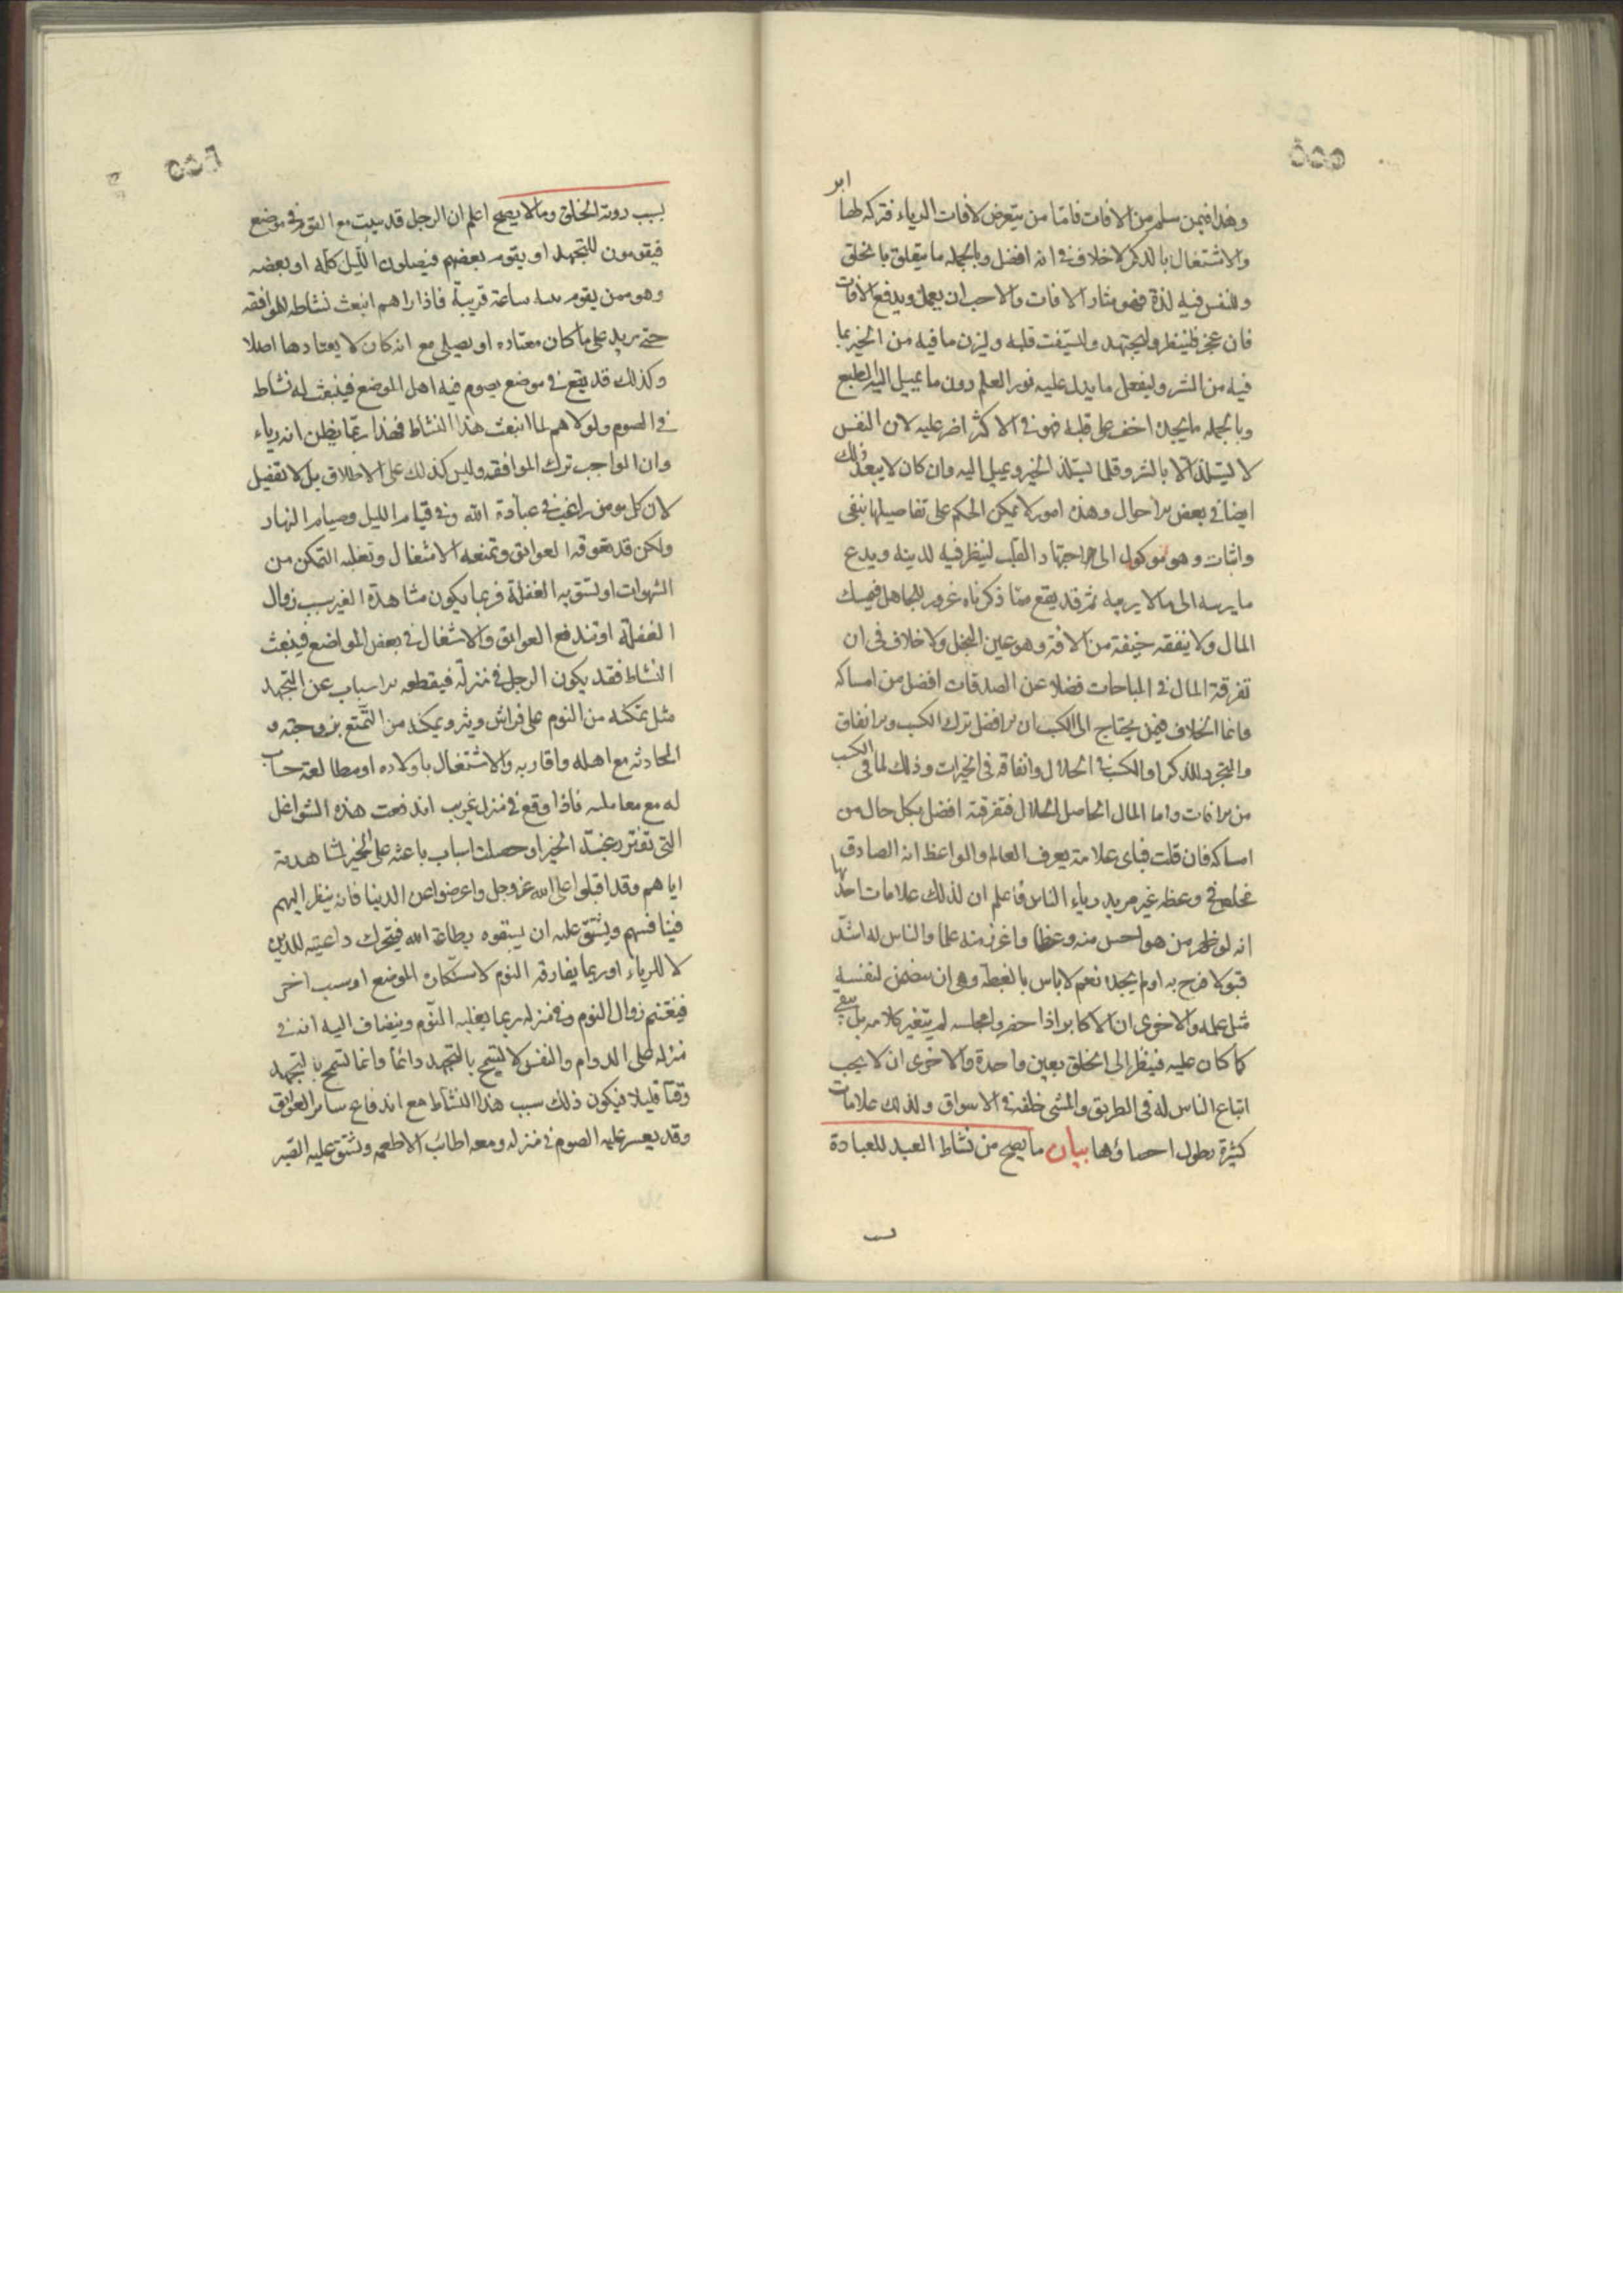 ٥٥٥
وهذا فيمن سلم من الافات فاما من يتعرض لافات الرياء فتركه لها ابر
والاشتغال بالذكر لا خلاف في انه افضل وبالجمله ما يتعلق بالخلق
وللنفس فيه لذة فهو مثار الافات والاحب ان يعمل ويدفع الافات
فان عجز فلينظر وليجتهد وليستفت قلبه وليزن ما فيه من الخير بما
فيه من الشر وليفعل ما يدل عليه نور العلم دون ما يميل اليه الطبع
وبالجمله ما يجده اخف على قلبه فهو في الاكثر اضر عليه لان النفس
لا تستلذ الا بالشر وقلما تستلذ الخير ويميل اليه وان كان لا يبعد ذلك
ايضا في بعض الاحوال وهذه امور لا يمكن الحكم على تفاصيلها بنفى
واثبات وهو موكول الى اجتهاد القلب لينظر فيه لدينه ويدع
ما يريبه الى ما لا يريبه ثم قد يقع مما ذكرناه غرور للجاهل فيمسك
المال ولا ينفقه خيفة من الافة وهو عين البخل ولا خلاف في ان
تفرقة المال في المباحات فضلا عن الصدقات افضل من امساكه
وانما الخلاف فيمن يحتاج الى الكسب ان الافضل ترك الكسب والانفاق
والتجرد للذكر او الكسب في الحلال وانفاقه في الخيرات وذلك لما في الكسب
من الافات واما المال الحاصل الحلال فتفرقته افضل بكل حال من
امساكه فان قلت فباى علامة يعرف العالم والواعظ انه الصادق
مخلص في وعظه غير مريد رياء الناس فاعلم ان لذلك علامات احدها
انه لو ظهر من هو احسن منه وعظا واغزر منه علما والناس له اشد
قبولا فرح به اولم يجده نعم لا باس بالغبطة وهى ان لنفسه
مثل عمله والاخرى ان الاكابر اذا حضروا مجلسه لم يتغير كلامه بل يبقى
كما كان عليه فينظر الى الخلق بعين واحدة والاخرى ان لا يحب
اتباع الناس له في الطريق والمشى خلفه في الاسواق ولذلك علامات
كثيرة يطول احصاؤها بيان ما يصح من نشاط العبد للعبادة
بسب
٥٥٦
بسبب روية الخلق وما لا يصح اعلم ان الرجل قد يبيت مع القوم في موضع
فيقومون للتهجد او يقوم بعضهم فيصلون الليل كله او بعضه
وهو ممن يقوم ساعة قريبة فاذا راهم انبعث نشاطه للموافقه
حتى يزيد على ما كان معتاده او يصلى مع انه كان لا يعتادها اصلا
وكذلك قد يقع في موضع يصوم فيه اهل الموضع فينبعث له نشاط
في الصوم ولولاهم لما انبعث هذا النشاط فهذا ربما يظن انه رياء
وان الواجب ترك الموافقه وليس كذلك على الاطلاق بل لا تفصيل
لان كل مومن راغب في عبادة الله وفي قيام الليل وصيام النهار
ولكن قد تعوقه العوايق وتمنعه الاشغال وتغلبه التمكن من
الشهوات او تستو به الغفلة فربما يكون مشاهدة الغير سبب زوال
الغفلة او تندفع العوايق والاشغال في بعض المواضع فينبعث
النشاط فقد يكون الرجل في منزله فيقطعه الاسباب عن التهجد
مثل تمكنه من النوم على فراش وثير ويمكنه من التمتع بزوجته و
المحادثه مع اهله واقاربه والاشتغال باولاده او مطالعة حساب
له مع معامليه فاذا وقع في منزل غريب اندفعت هذه الشواغل
التى تفتر رغبته الخير او حصلت اسباب باعثه على الخير لمشاهدته
اياهم وقد اقبلوا على الله عز وجل واعرضوا عن الدنيا فانه ينظر اليهم
فينافسهم ويشق عليه ان يسبقوه بطاعة الله فيتحرك داعيته للدين
لا للرياء او ربما يفارقه النوم لاستنكاره الموضع او سبب اخر
فيغتنم زوال النوم وفي منزله ربما يغلبه النوم وينضاف اليه انه في
منزله على الدوام والنفس لا تسمح بالتهجد دائما وانما تسمح بالتهجد
وقتا قليلا فيكون ذلك سبب هذا النشاط مع اندفاع سائر العوايق
وقد يعسر عليه الصوم في منزله ومعه اطائب الاطعمه وتشق عليه الصبر